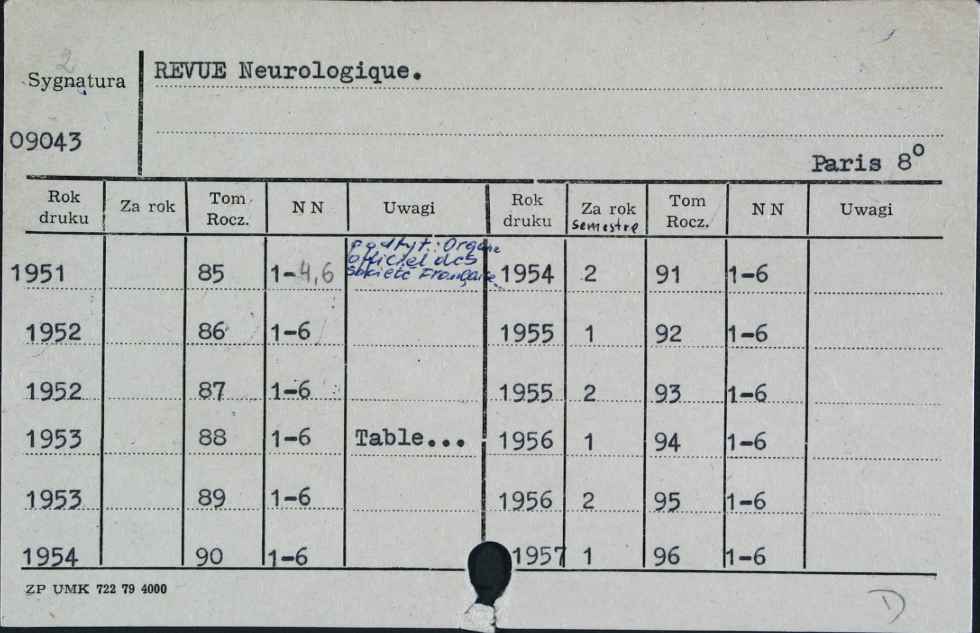 2
Sygnatura REVUE Neurologique.
09043
Paris 8°
Rok druku Za rok Tom Rocz. NN Uwagi Rok druku Za rok semestre Tom Rocz. NN Uwagi
podtyt.: Organe
officiel des
Société Française
1951 85 1-4,6 1954 2 91 1-6
1952 86 1-6 1955 1 92 1-6
1952 87 1-6 1955 2 93 1-6
1953 88 1-6 Table... 1956 1 94 1-6
1953 89 1-6 1956 2 95 1-6
1954 90 1-6 1957 1 96 1-6
ZP UMK 722 79 4000
1)